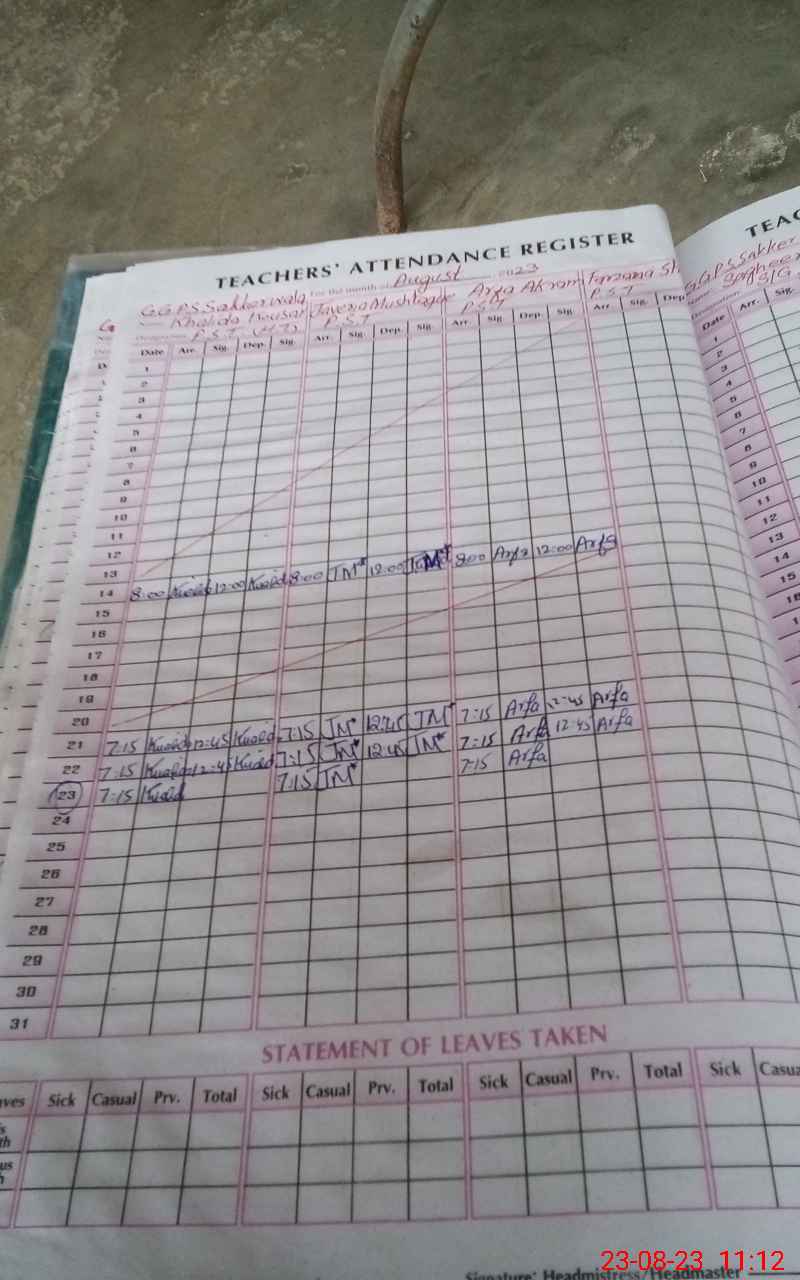 TEACHERS' ATTENDANCE REGISTER
G.G.P.S Sakkerwala For the month of August 2023
Khalida Kousar Javeria Mushtaque Arfa Akram Farzana Sh
P.S.T (H.T) P.S.T P.S.T P.S.T
Date Arr. Sig. Dep. Sig. Arr. Sig. Dep. Sig. Arr. Sig. Dep. Sig. Arr. Sig. Dep.
1
2
3
4
5
6
7
8
9
10
11
12
13
14 8:00 12:00 8:00 JM 12:00 JM 8:00 Arfa 12:00 Arfa
15
16
17
18
19
20
21 7:15 12:45 7:15 JM 12:45 JM 7:15 Arfa 12:45 Arfa
22 7:15 12:45 7:15 JM 12:45 JM 7:15 Arfa 12:45 Arfa
23 7:15 7:15 JM 7:15 Arfa
24
25
26
27
28
29
30
31
STATEMENT OF LEAVES TAKEN
Sick Casual Prv. Total Sick Casual Prv. Total Sick Casual Prv. Total Sick Casua
Signature: Headmistress/Headmaster
TEAC
G.G.P.S Sakker
Date Arr. Sig.
1
2
3
4
5
6
7
8
9
10
11
12
13
14
15
16
23-08-23 11:12